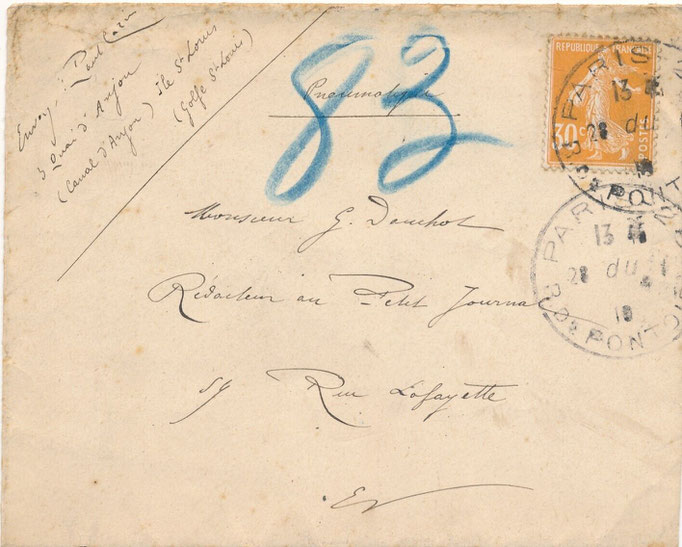 Envoy: Paul
5 Quai d'Anjou
(Canal d'Anjou) Ile St Louis
(Golfe St Louis)
83
Pneumatique
REPUBLIQUE FRANÇAISE
30c
POSTES
PARIS
13
28
PARIS
13
28
Monsieur G. Douchot
Rédacteur au Petit Journal
59 Rue Lafayette
EV